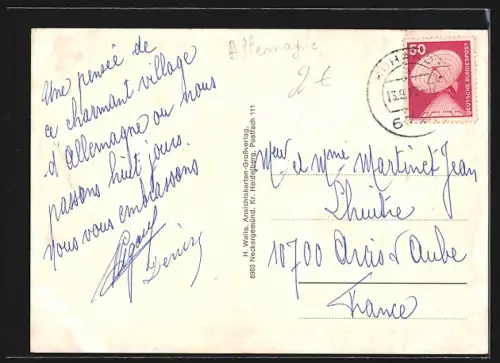 Une pensée de
ce charmant village
d'Allemagne ou nous
passons huit jours.
Nous vous embrassons
Denis
Allemagne
2€
H. Walla, Ansichtskarten-Großverlag,
6903 Neckargemünd, Kr. Heidelberg, Postfach 111
50
DEUTSCHE BUNDESPOST
13.9.
Meur et Mme Martinet Jean
Lhuitre
10700 Arcis s/ Aube
France